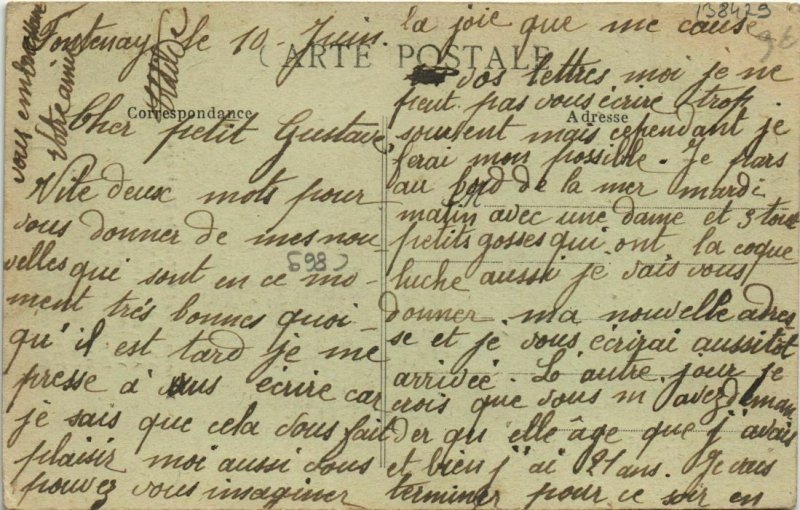 Fontenay, le 10 Juin.
CARTE POSTALE
Correspondance
Adresse
Cher petit Gustave
Vite deux mots pour
vous donner de mes nou-
velles qui sont en ce mo-
ment trés bonnes quoi-
qu'il est tard je me
presse à vous écrire car
je sais que cela vous fait
plaisir moi aussi vous
pouvez vous imaginer
la joie que me cause
vos lettres moi je ne
peut pas vous écrire trop
souvent mais cependant je
ferai mon possible. Je pars
au bord de la mer mardi
matin avec une dame et 3 tout
petits gosses qui ont la coque
luche aussi je vais vous
donner ma nouvelle adres
se et je vous écrirai aussitôt
arrivée. L'autre jour je
crois que vous m'avez deman
der qu'elle âge que j'avais
et bien j'ai 21 ans. Je vais
terminer pour ce soir en
vous embrassant
Votre amie
138429